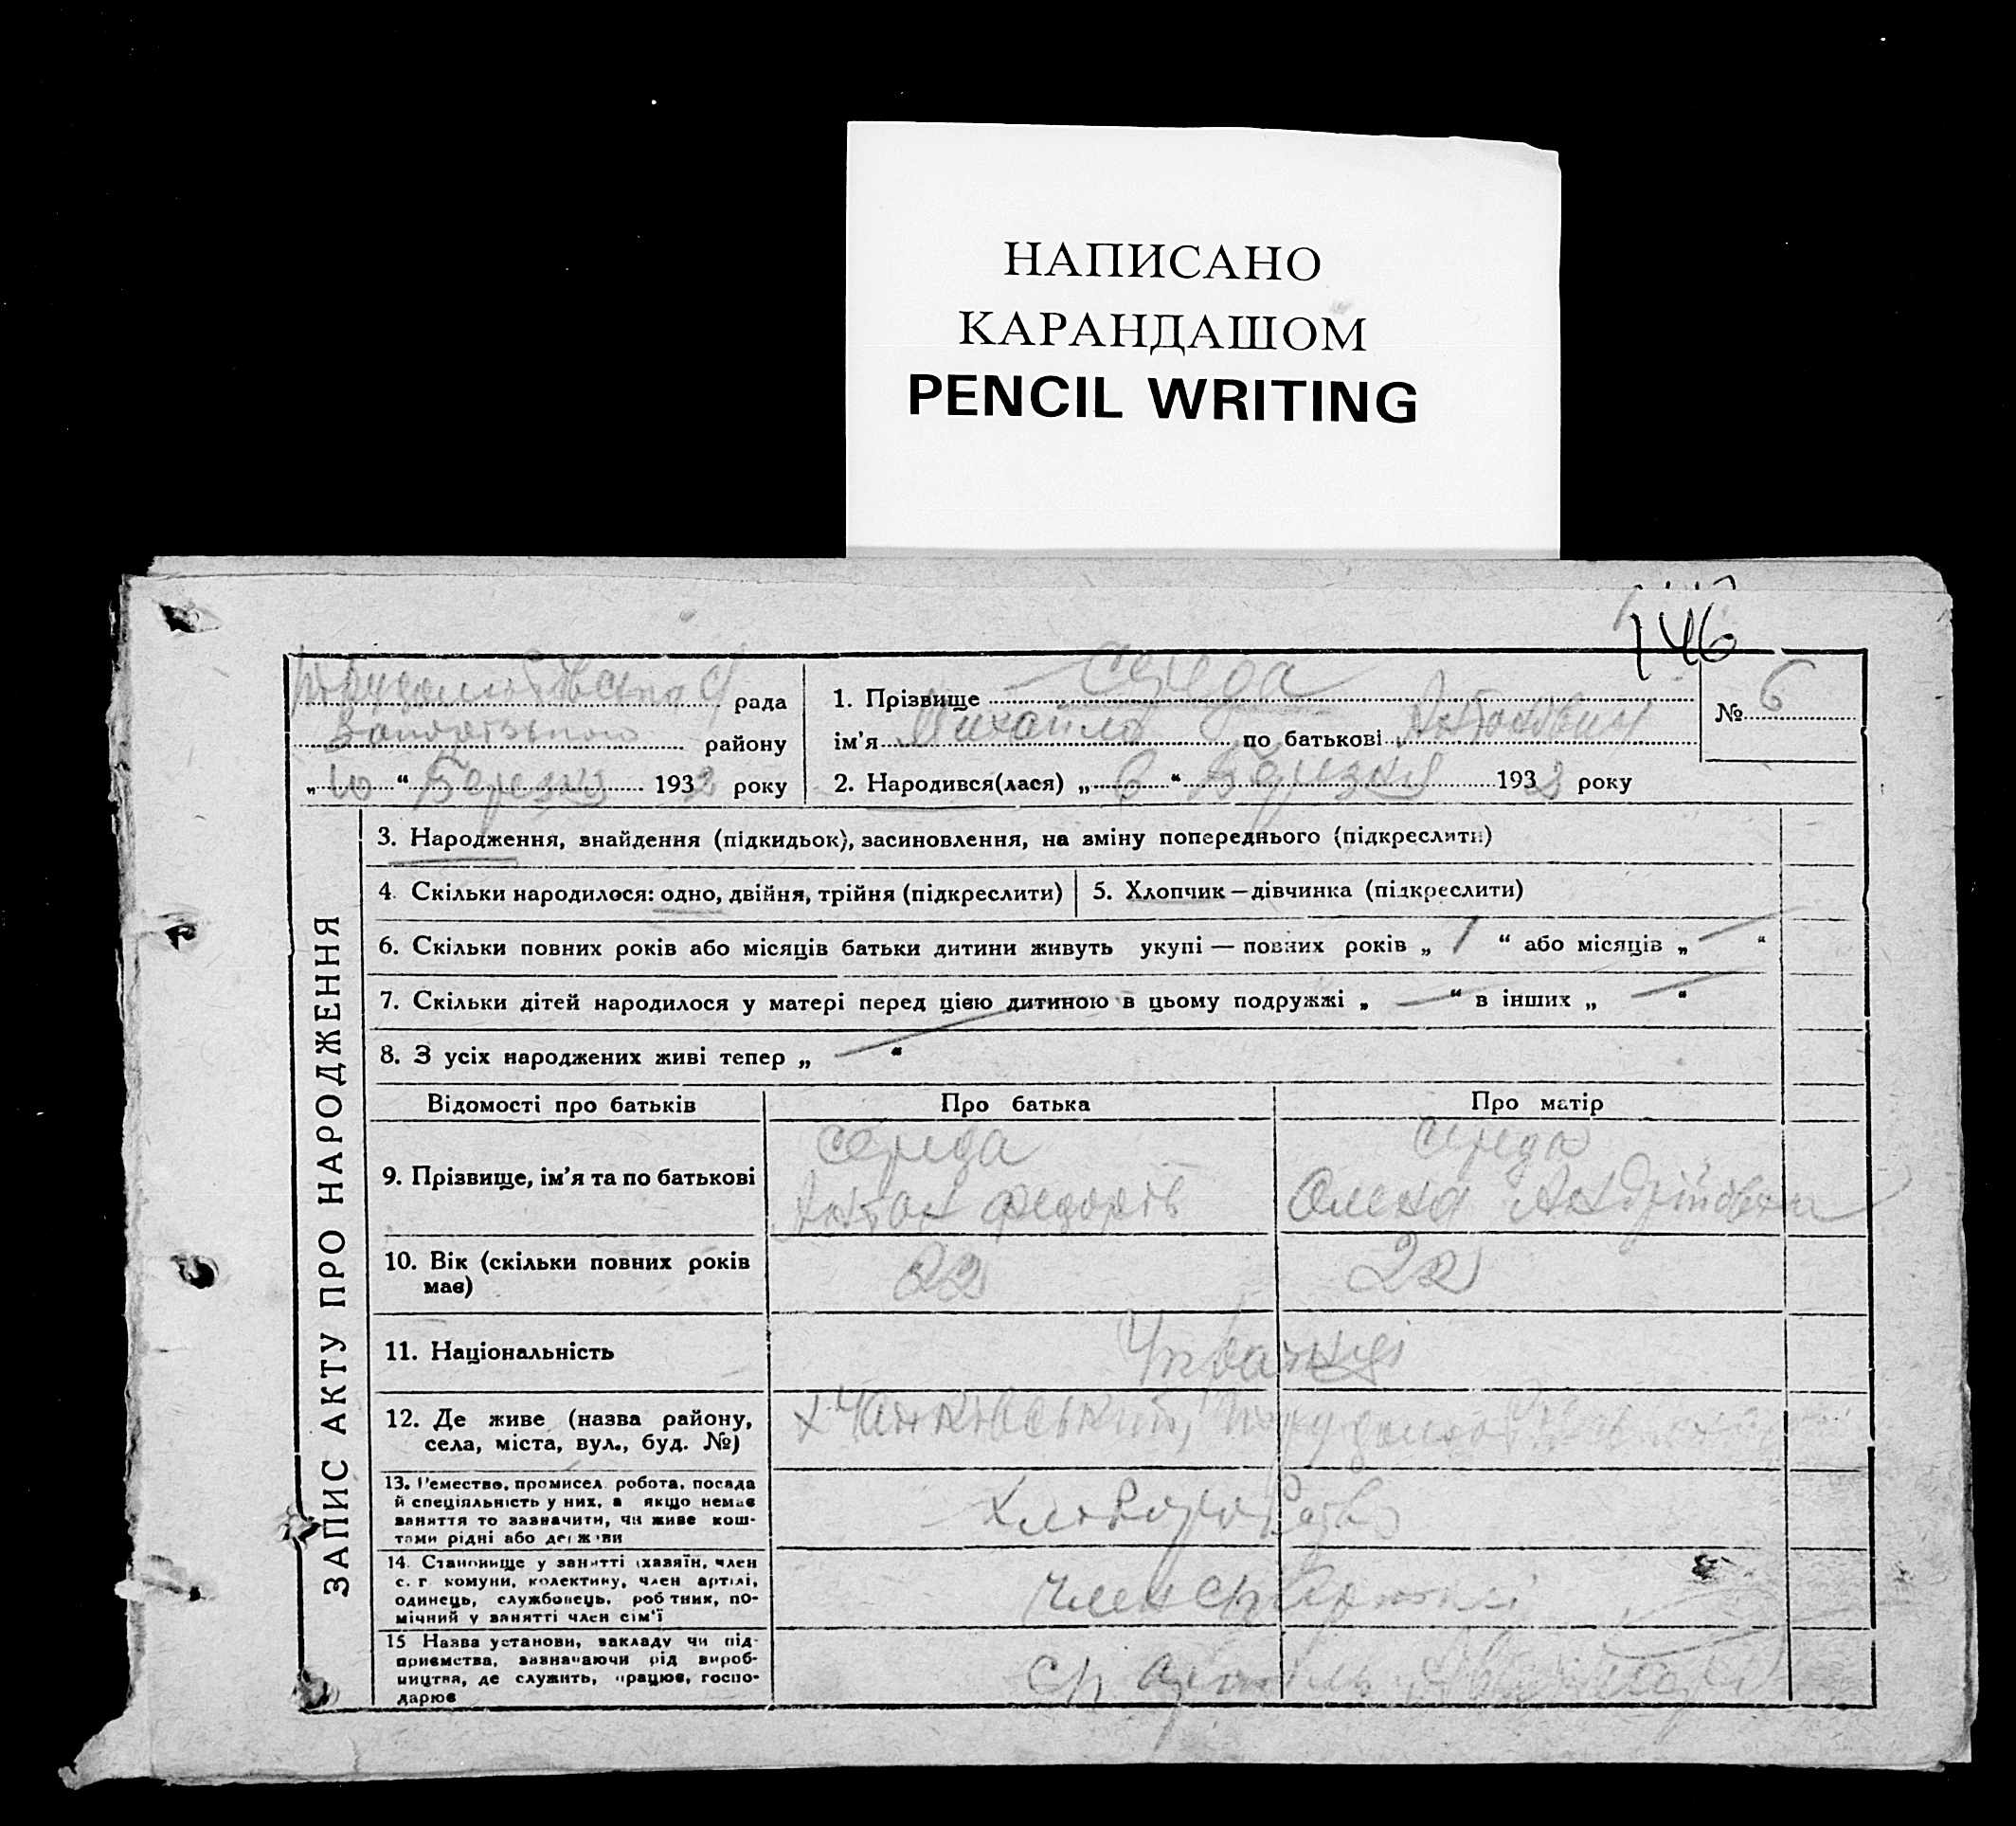 НАПИСАНО
КАРАНДАШОМ
PENCIL WRITING
146
рада
району
„10“ Березня 1932 року
1. Прізвище Середа
ім'я Михайло по батькові Антонович
2. Народився(лася) „6“ Березня 1932 року
№ 6
ЗАПИС АКТУ ПРО НАРОДЖЕННЯ
3. Народження, знайдення (підкидьок), засиновлення, на зміну попереднього (підкреслити)
4. Скільки народилося: одно, двійня, трійня (підкреслити)
5. Хлопчик — дівчинка (підкреслити)
6. Скільки повних років або місяців батьки дитини живуть укупі — повних років „ 1 “ або місяців „ — “
7. Скільки дітей народилося у матері перед цією дитиною в цьому подружжі „ — “ в інших „ — “
8. З усіх народжених живі тепер „ — “
Відомості про батьків Про батька Про матір
9. Прізвище, ім'я та по батькові
Середа
Антон Федорів
Середа
Олена Андрійовна
10. Вік (скільки повних років має) 22 22
11. Національність
12. Де живе (назва району,
села, міста, вул., буд. №)
13. Ремество, промисел, робота, посада
й спеціяльність у них, а якщо немає
заняття то зазначити, чи живе кош-
тами рідні або держави
Хлібороб
14. Становище у занятті (хазяїн, член
с. г. комуни, колективу, член артілі,
одинець, службовець, робітник, по-
мічний у занятті член сім'ї
член ср Артілі
15 Назва установи, закладу чи під-
приємства, зазначаючи рід вироб-
ництва, де служить, працює, госпо-
дарює
ср артіль